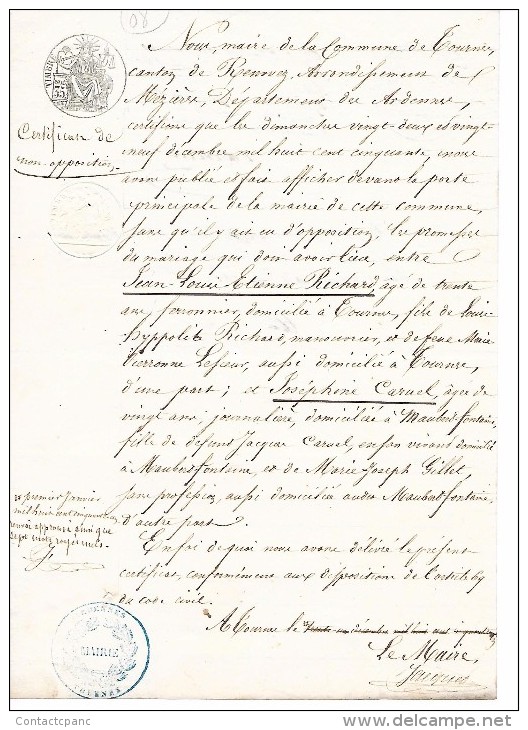 08
TIMBRE
35
Certificat de
non-opposition
Nous, maire de la Commune de Tournes,
canton de Renwez, Arrondissement de
Mézières, Département des Ardennes,
certifions que les dimanches vingt-deux et vingt-
neuf décembre mil huit cent cinquante, nous
avons publié et fait afficher devant la porte
principale de la mairie de cette commune,
sans qu'il y ait eu d'opposition, les promesses
du mariage qui doit avoir lieu, entre
Jean-Louis-Etienne Richard, âgé de trente
ans, ferronnier, domicilié à Tournes, fils de Louis-
hyppolite Richard, manouvrier, et de feue Marie
Pierronne Lefeur, aussi domicilié à Tournes,
d'une part; et Joséphine Caruel, âgée de
vingt ans, journalière, domiciliée à Maubert-fontaine,
fille de défunt Jacques Caruel, en son vivant domicilié
à Maubert-fontaine, et de Marie Joseph Gillet,
sans profession, aussi domiciliée audit Maubert-fontaine,
d'autre part.
En foi de quoi nous avons délivré le présent
certificat, conformément aux dispositions de l'article 69
du code civil.
premier janvier
mil huit cent cinquante un,
renvoi approuvé ainsi que
sept mots rayés nuls.
A Tournes le trente un décembre mil huit cent cinquante
Le Maire,
MAIRIE
ARDENNES
Contactcpanc
delcampe.net